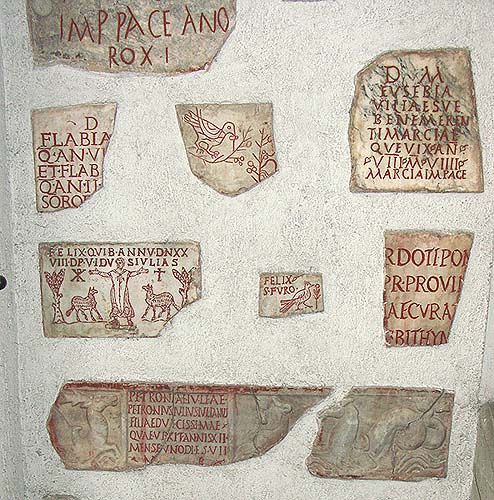 IMP PACE ANO
ROXI
D
FLABIA
Q·AN·V
ET·FLAB
Q·AN·II
SOROR
D M
EVSEBIA
BENEMEREN
TI MARCIAE
QVE VIX·AN
VIII·M·VIIII
MARCIA IM PACE
FELIX·QVI·B·ANNV·D·N·XX
VIII·DPV·IDVS·IVLIAS
FELIX
S·FVRO·
RDOTI PON
PR·PROVIN
AE CVRA
BITHYN
PETRONIA
PETRONIVS
FILIAE DVLCISSIMAE
QVAE VIXIT ANNIS XII
MENSE VNO DIES VII